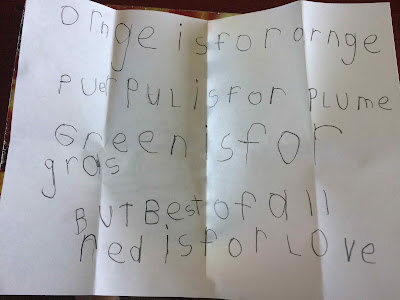 ornge is for ornge
PUerPUL is FOr PLUme
Green is for
gras
BUT Best of all
red is for LOve